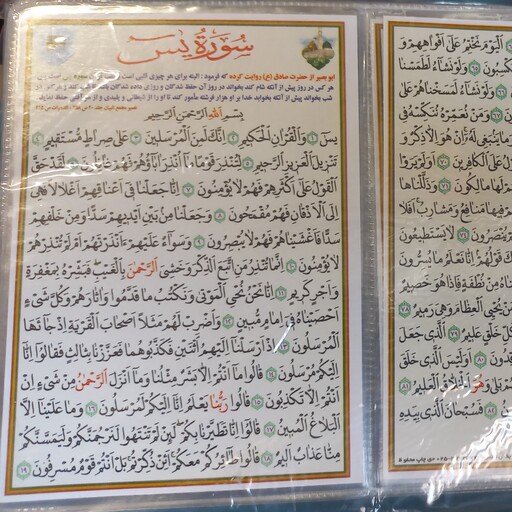 سورة يس
ابوبصير از حضرت صادق (ع) روايت كرده كه فرمود : البته براى هر چيزى قلبى است
هر كس در روز پيش از آنكه شام كند بخواند در روز از آن حفظ شدگان و روزى داده شدگان باشد
شب بخواند پيش از خواب خدا بر او هزار فرشته مأمور كند تا او را از شيطانى و پليدى و از هر آفتى حفظ نمايند
بسم الله الرحمن الرحيم
يس ١ والقران الحكيم ٢ انك لمن المرسلين ٣ على صراط مستقيم ٤
تنزيل العزيز الرحيم ٥ لتنذر قوما ما انذر اباؤهم فهم غافلون ٦ لقد حق
القول على اكثرهم فهم لا يؤمنون ٧ انا جعلنا فى اعناقهم اغلالا فهى
الى الاذقان فهم مقمحون ٨ وجعلنا من بين ايديهم سدا ومن خلفهم
سدا فاغشيناهم فهم لا يبصرون ٩ وسواء عليهم ءانذرتهم ام لم تنذرهم
لا يؤمنون ١٠ انما تنذر من اتبع الذكر وخشى الرحمن بالغيب فبشره بمغفرة
واجر كريم ١١ انا نحن نحى الموتى ونكتب ما قدموا واثارهم وكل شىء
احصيناه فى امام مبين ١٢ واضرب لهم مثلا اصحاب القرية اذ جاءها
المرسلون ١٣ اذ ارسلنا اليهم اثنين فكذبوهما فعززنا بثالث فقالوا انا
اليكم مرسلون ١٤ قالوا ما انتم الا بشر مثلنا وما انزل الرحمن من شىء ان
انتم الا تكذبون ١٥ قالوا ربنا يعلم انا اليكم لمرسلون ١٦ وما علينا الا
البلاغ المبين ١٧ قالوا انا تطيرنا بكم لئن لم تنتهوا لنرجمنكم وليمسنكم
منا عذاب اليم ١٨ قالوا طائركم معكم ائن ذكرتم بل انتم قوم مسرفون ١٩
اليوم نختم على افواههم و
ولو نشاء لطمسنا
ولو نشاء لمسخناهم على
ومن نعمره ننكسه فى
وما ينبغى له ان هو الا ذكر و
على الكافرين اولم يروا
لها مالكون وذللناها
فيها منافع ومشارب افلا
ينصرون لا يستطيعون
قولهم انا نعلم ما يسرون
من نطفة فاذا هو خصيم
يحيى العظام وهى رميم
بكل خلق عليم الذى جعل
اوليس الذى خلق
بلى وهو الخلاق العليم
فسبحان الذى بيده